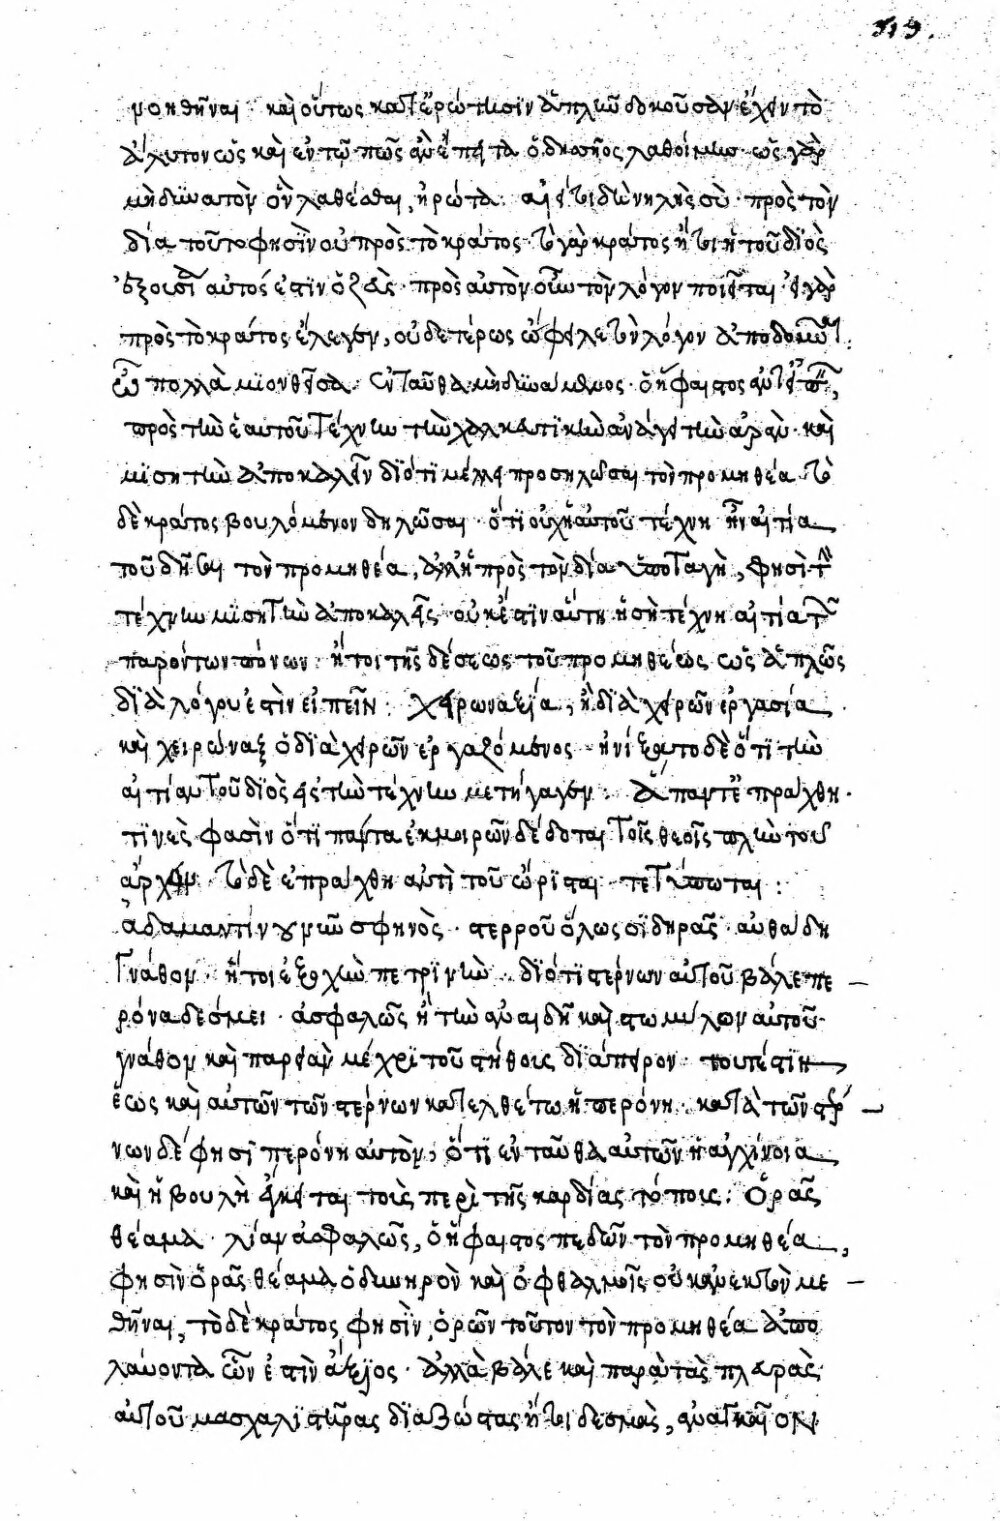 319.
νοηθῆναι καὶ οὕτως κατ' ἐρώτησϊν ἁπλῶς δοκοῦσαν ἔχειν τὸ
ἄλυτον ὡς καὶ ἐν τῷ πῶς
μὴ δυνατὸν ὂν λαθέσθαι, ἠρώτα. αἰεί τι δὴ νηλὴς σὺ πρὸς τὸν
δία τοῦτο φησὶν οὐ πρὸς τὸ κράτος τὸ γὰρ κράτος ἤτοι ἡ τοῦ διὸς
ἐξουσία αὐτός ἐστιν ὁ ζεὺς πρὸς αὐτὸν οὖν τὸν λόγον ποιεῖται εἰ γὰρ
πρὸς τὸ κράτος ἔλεγεν, οὐδετέρως ὤφειλε τὸν λόγον ἀποδοῦναι
ὦ πολλὰ μισηθεῖσα ἐνταῦθα μὴ δυνάμενος ὁ ἥφαιστος
πρὸς τὴν ἑαυτοῦ τέχνην τὴν χαλκευτικὴν ἀνάγει τὴν ἀρὰν καὶ
μισητὴν ἀποκαλεῖ διότι μέλλει προσηλῶσαι τὸν προμηθέα τὸ
δὲ κράτος βουλόμενον δηλῶσαι ὅτι οὐχ ἡ αὐτοῦ τέχνη ἦν αἰτία
τοῦ δῆσαι τὸν προμηθέα, ἀλλ' ἡ πρὸς τὸν δία ὑποταγὴ, φησὶ τί
τέχνην μισητὴν ἀποκαλεῖς οὐκ ἔστιν αὕτη ἡ σὴ τέχνη αἰτία τῶν
παρόντων πόνων ἤτοι τῆς δέσεως τοῦ προμηθέως ὡς ἁπλῶς
διὰ λόγου ἐστὶν εἰπεῖν: χειρωναξία, ἡ διὰ χειρῶν ἐργασία
καὶ χειρώναξ ὁ διὰ χειρῶν ἐργαζόμενος ἠνίξατο δὲ ὅτι τὴν
αἰτίαν τοῦ διὸς εἰς τὴν τέχνην μετήγαγεν: ἅπαντ' ἐπράχθη
τινὲς φασὶν ὅτι πάντα ἐκ μοιρῶν δέδοται τοῖς θεοῖς πλὴν τοῦ
ἄρχειν τὸ δὲ ἐπράχθη ἀντὶ τοῦ ὥρισται τετύπωται:
ἀδαμαντίνου νῦν σφηνὸς στερροῦ ὅλως σιδηρᾶς αὐθάδη
γνάθον ἤτοι ἐξοχὴν πετρίνην διότι στέρνων αὐτοῦ βάλε πε
ρόνα δέσμει ἀσφαλῶς ἢ τὴν ἀναιδῆ καὶ στωμύλον αὐτοῦ
γνάθον καὶ παρειὰν μέχρι τοῦ στήθους διάπειρον τουτέστιν
ἕως καὶ αὐτῶν τῶν στέρνων κατελθέτω ἡ περόνη κατὰ τῶν στέρ
νων δέ φησι περόνη αὐτὸν, ὅτι ἐνταῦθα αὐτῶν ἡ ἀγχίνοια
καὶ ἡ βουλὴ ἔγκειται τοὺς περὶ τῆς καρδίας τόπους: ὁρᾷς
θέαμα λίαν ἀσφαλῶς, ὁ ἥφαιστος πεδῶν τὸν προμηθέα,
φησὶν ὁρᾷς θέαμα ὀδυνηρὸν καὶ ὀφθαλμοῖς οὐκ ἀνεκτὸν με
θῆναι, τὸ δὲ κράτος φησὶν, ὁρῶν τοῦτον τὸν προμηθέα ἀπο
λαύοντα ὧν ἐστὶν ἄξιος ἀλλὰ βάλε καὶ παρὰ τὰς πλευρὰς
αὐτοῦ μασχαλιστῆρας διαζώστας ἤτοι δεσμὰς, ἀναγκαῖον